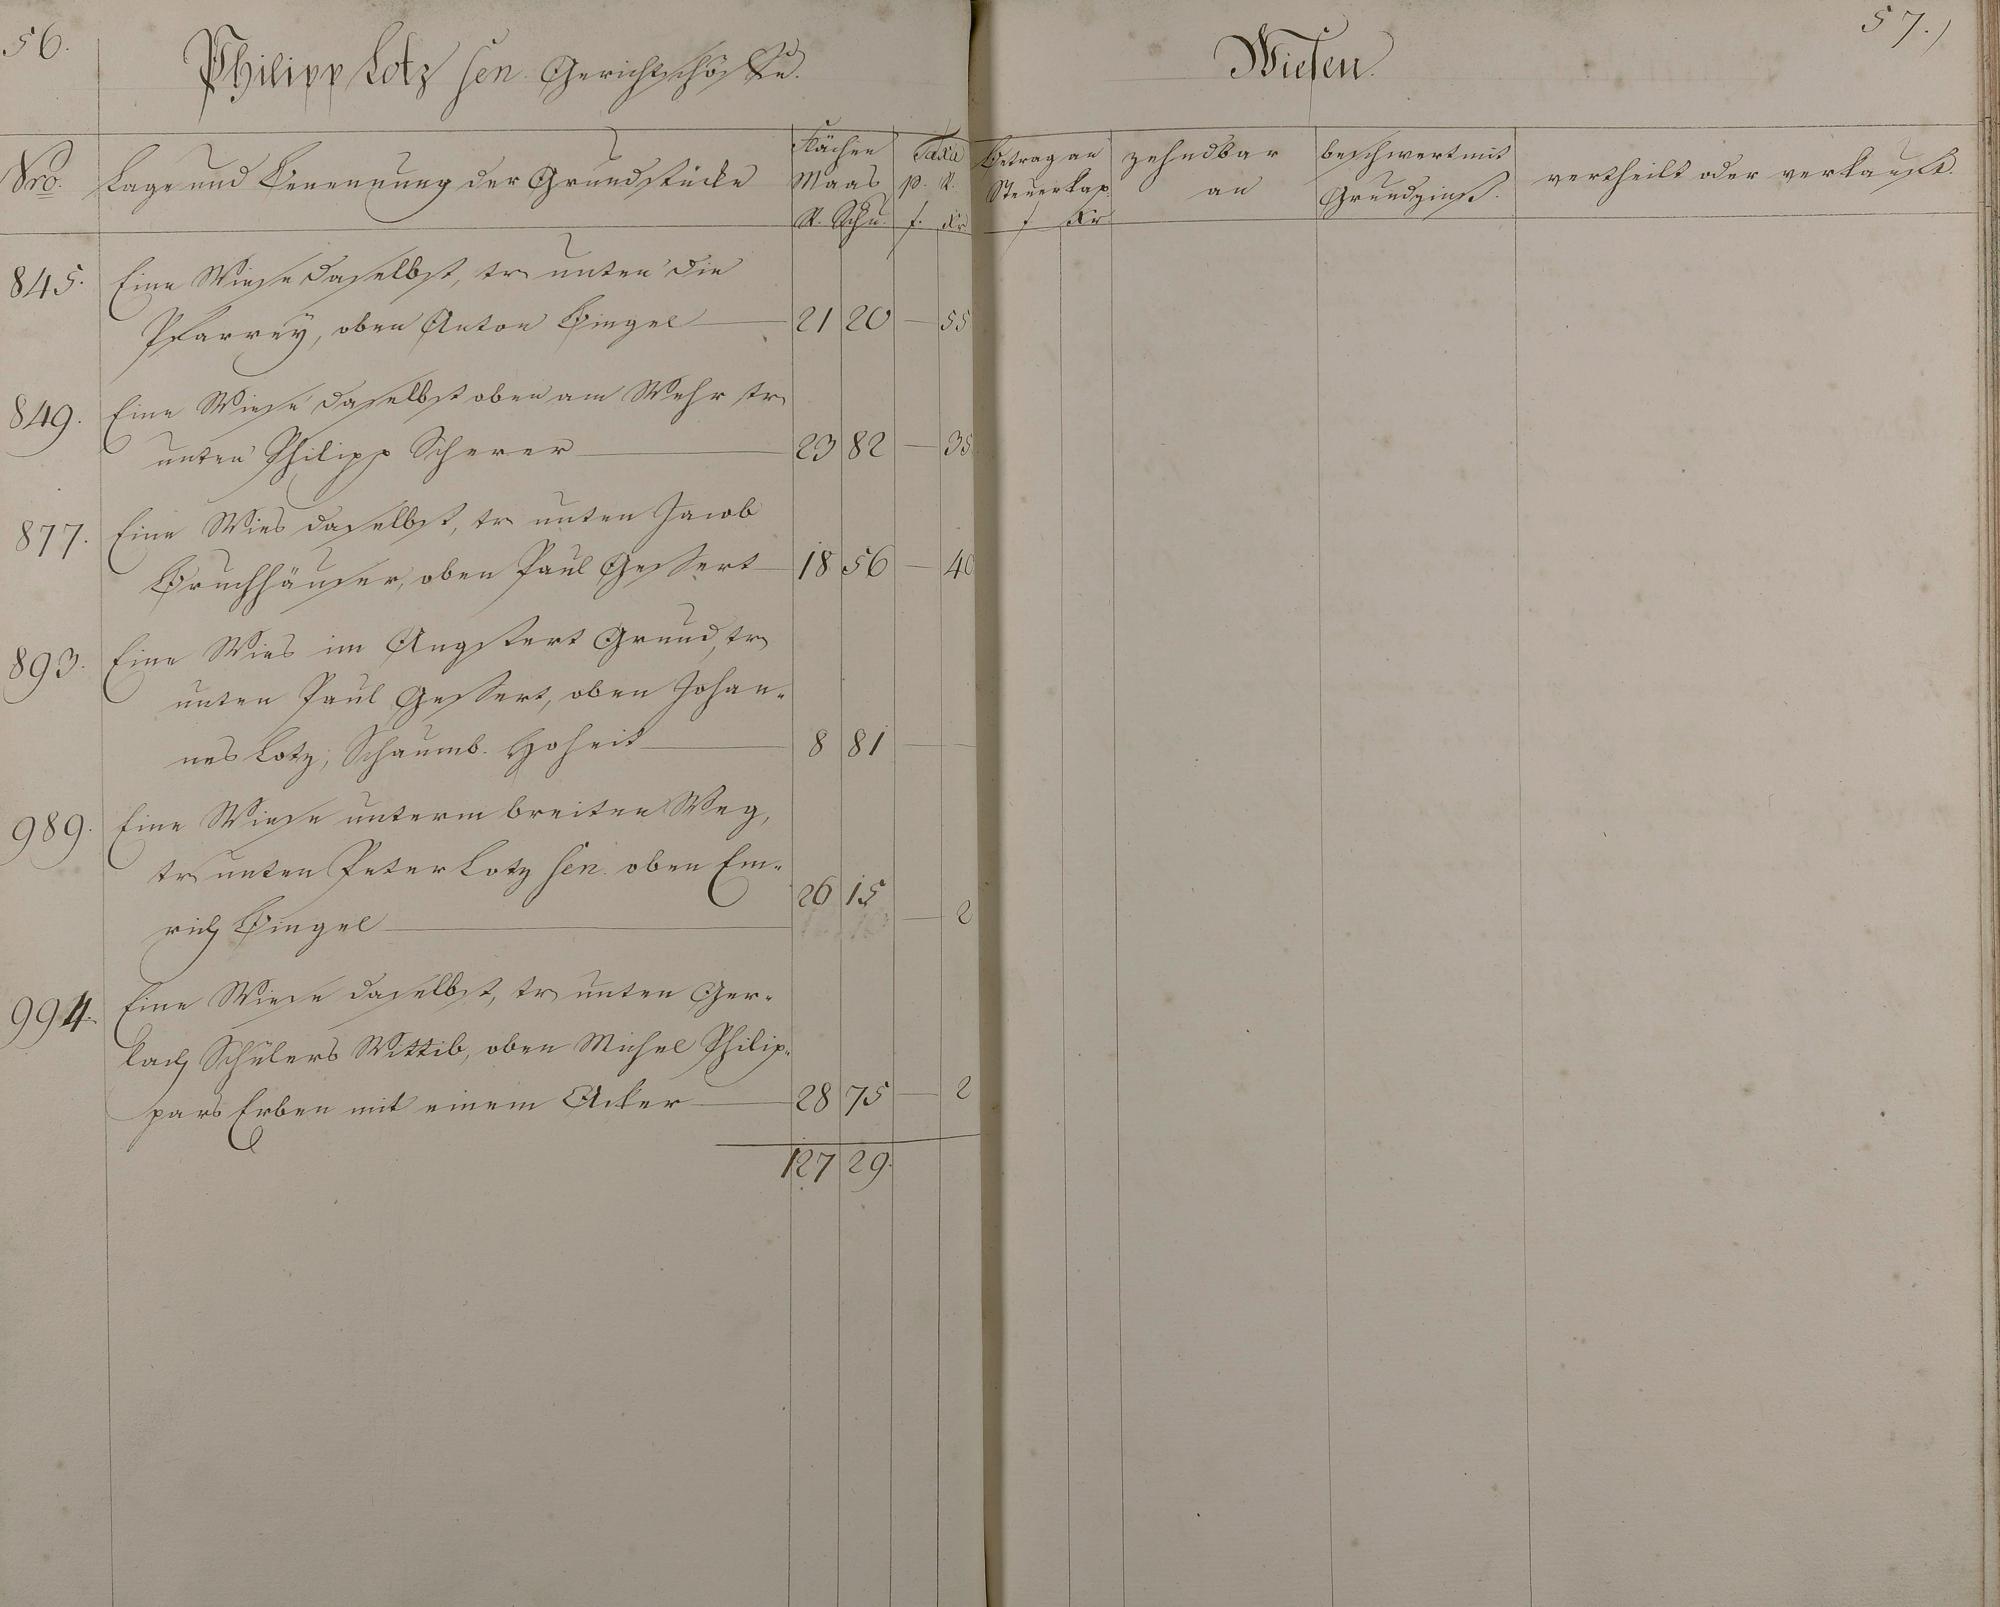 56.
Philipp Lotz sen. Gerichtschöffe.
Wiesen.
57.)
Nro. Lage und Benennung der Grundstücke Flächen Maas R. Schu. Taxe p. R. f. Kr
Betrag an Steuerkap. f Kr zehndbar an beschwert mit Grundzinß. vertheilt oder verkauft.
845. Eine Wiese daselbst, tr unten die
Pfarrey, oben Anton Bingel — 21 20 — 55
849. Eine Wiese daselbst oben am Wehr tr
unten Philipp Scherer — 23 82 — 35
877. Eine Wies daselbst, tr unten Jacob
Bruchhäuser, oben Paul Gessert — 18 56 — 40
893. Eine Wies im Angstert Grund, tr
unten Paul Gessert, oben Johan-
nes Lotz, Schaumb. Hoheit — 8 81 — —
989. Eine Wiese unterm breiten Weg,
tr unten Peter Lotz sen. oben Em-
rich Bingel — 26 15 — 2
994. Eine Wiese daselbst, tr unten Ger-
lach Schülers Wittib, oben Michel Philip-
pars Erben mit einem Acker — 28 75 — 2
127 29.